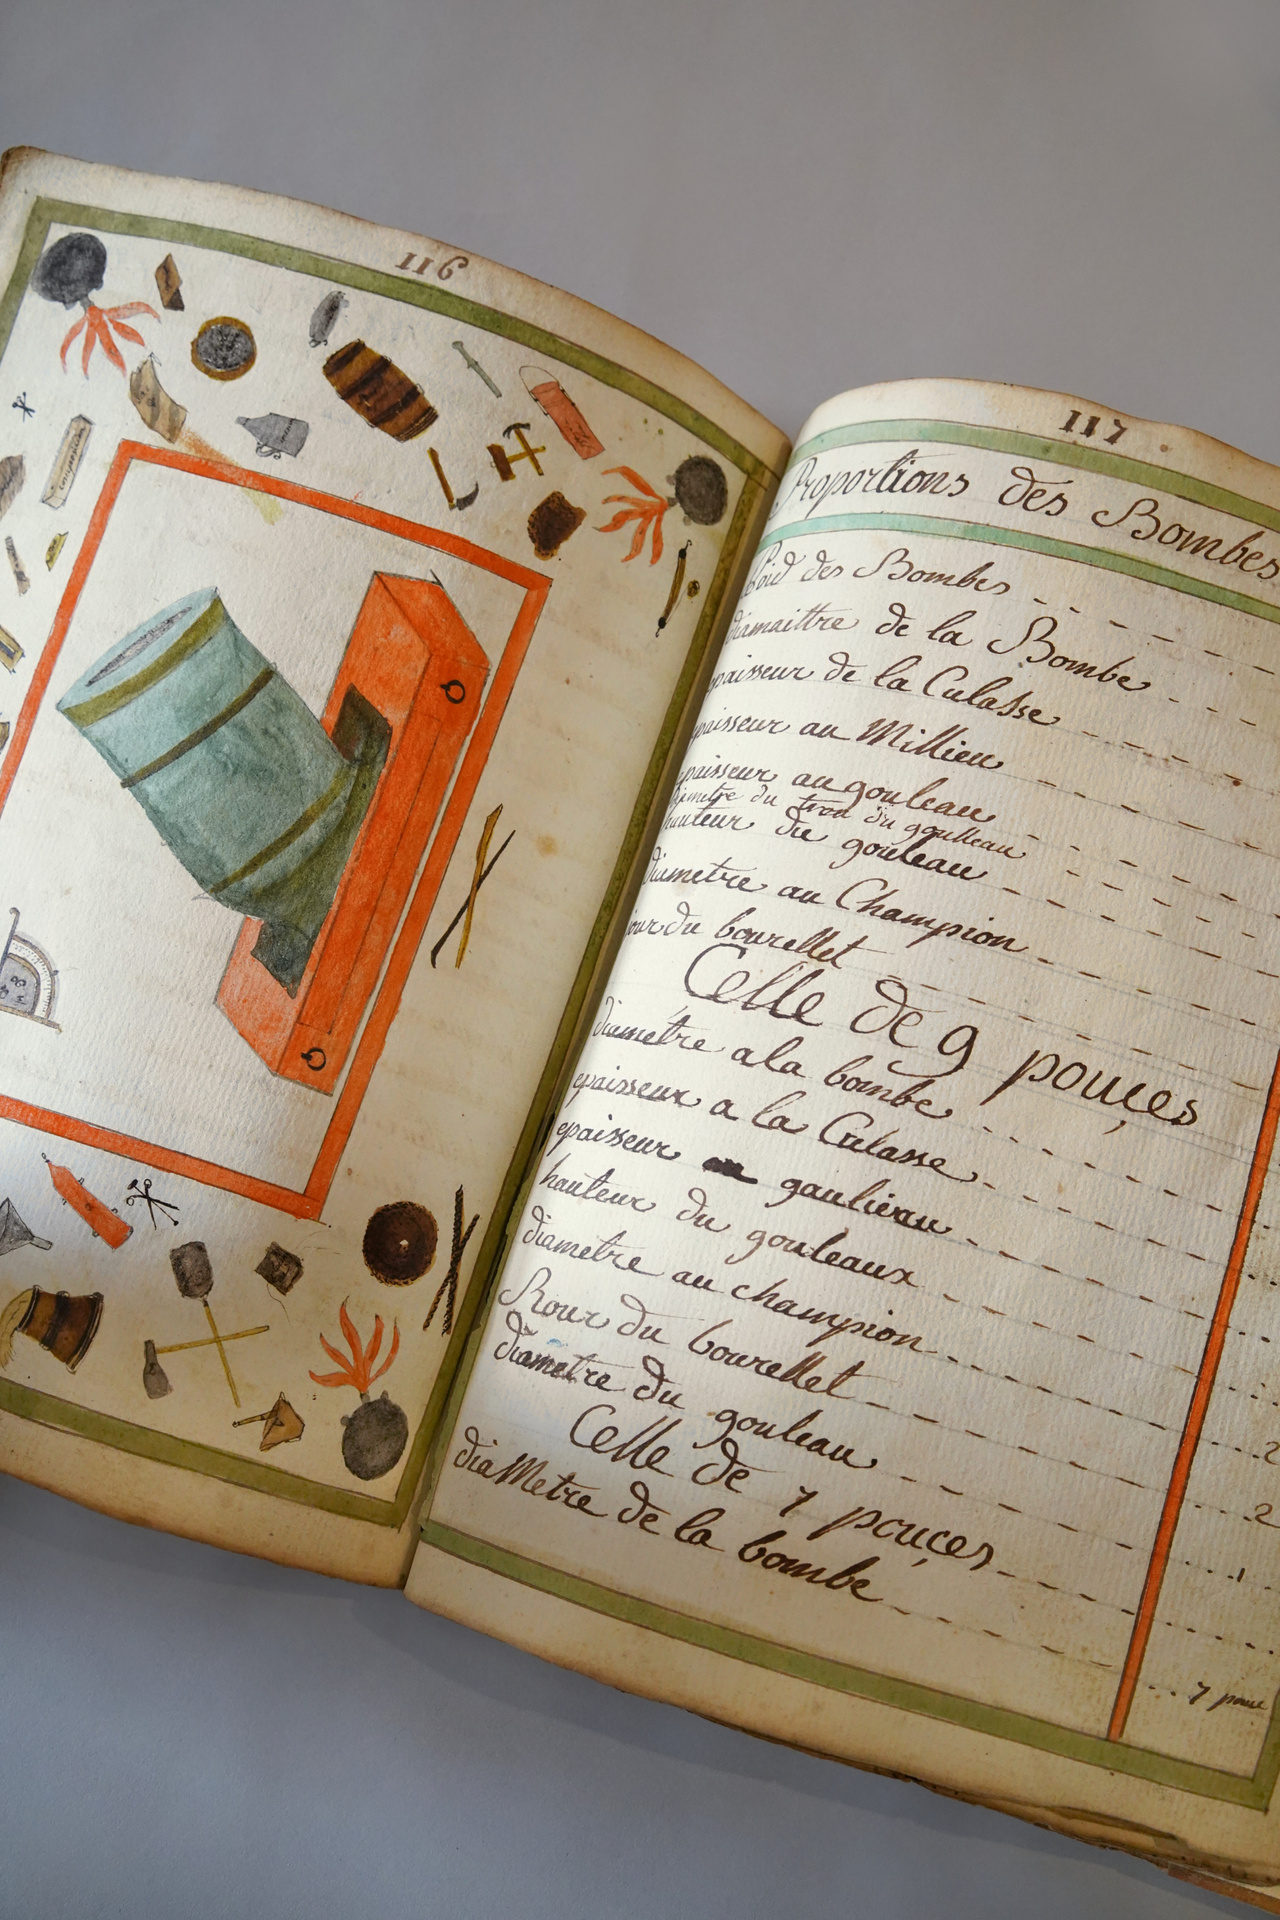 116
117
Proportions des Bombes
Poid des Bombes
diamaittre de la Bombe
epaisseur de la Culasse
epaisseur au Millieu
epaisseur au gouleau
diametre du trou du goulleau
hauteur du gouleau
diametre au Champion
du bourellet
Celle de 9 pouçes
diametre a la bombe
epaisseur a la Culasse
epaisseur gaulieau
hauteur du gouleaux
diametre au champion
Rour du bourellet
2
diametre du gouleau
2
Celle de 7 pouçes
1
diaMetre de la bombe
7 pouc